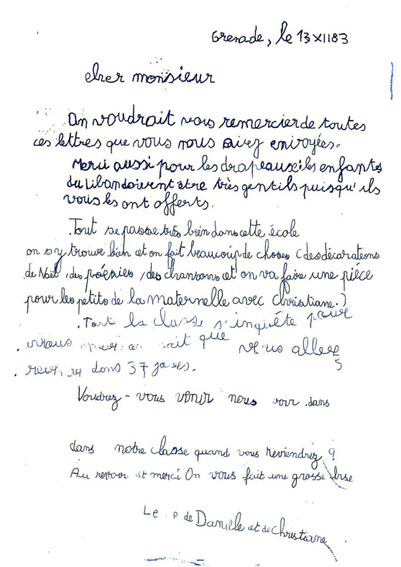 Grenade, le 13 XII 83
cher monsieur
On voudrait vous remercier de toutes
ces lettres que vous nous avez envoyées.
Merci aussi pour les drapeaux, les enfants
du Liban doivent être très gentils puisqu'ils
vous les ont offerts.
Tout se passe très bien dans cette école
on s'y trouve bien et on fait beaucoup de choses (des décorations
de Noël, des poésies, des chansons et on va faire une pièce
pour les petits de la maternelle avec Christiane.)
Toute la classe s'inquiète pour
vous que vous allez
dans 37 jours.
Voudrez-vous venir nous voir dans
dans notre classe quand vous reviendrez ?
Au revoir et merci On vous fait une grosse bise
Le CP de Danielle et de Christiane